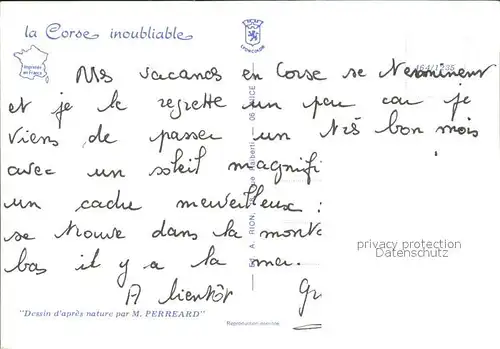 la Corse inoubliable
LYONCOLOR
Imprimé en France
164/1285
Mes vacances en Corse se terminent
et je le regrette un peu car je
viens de passer un très bon mois
avec un soleil magnifi
un cadre merveilleux :
se trouve dans la mont
bas il y a la mer.
A bientôt
"Dessin d'après nature par M. PERREARD"
Reproduction interdite
Ed. A. RION, Haliberti — 06 NICE
privacy protection
delcampe.net